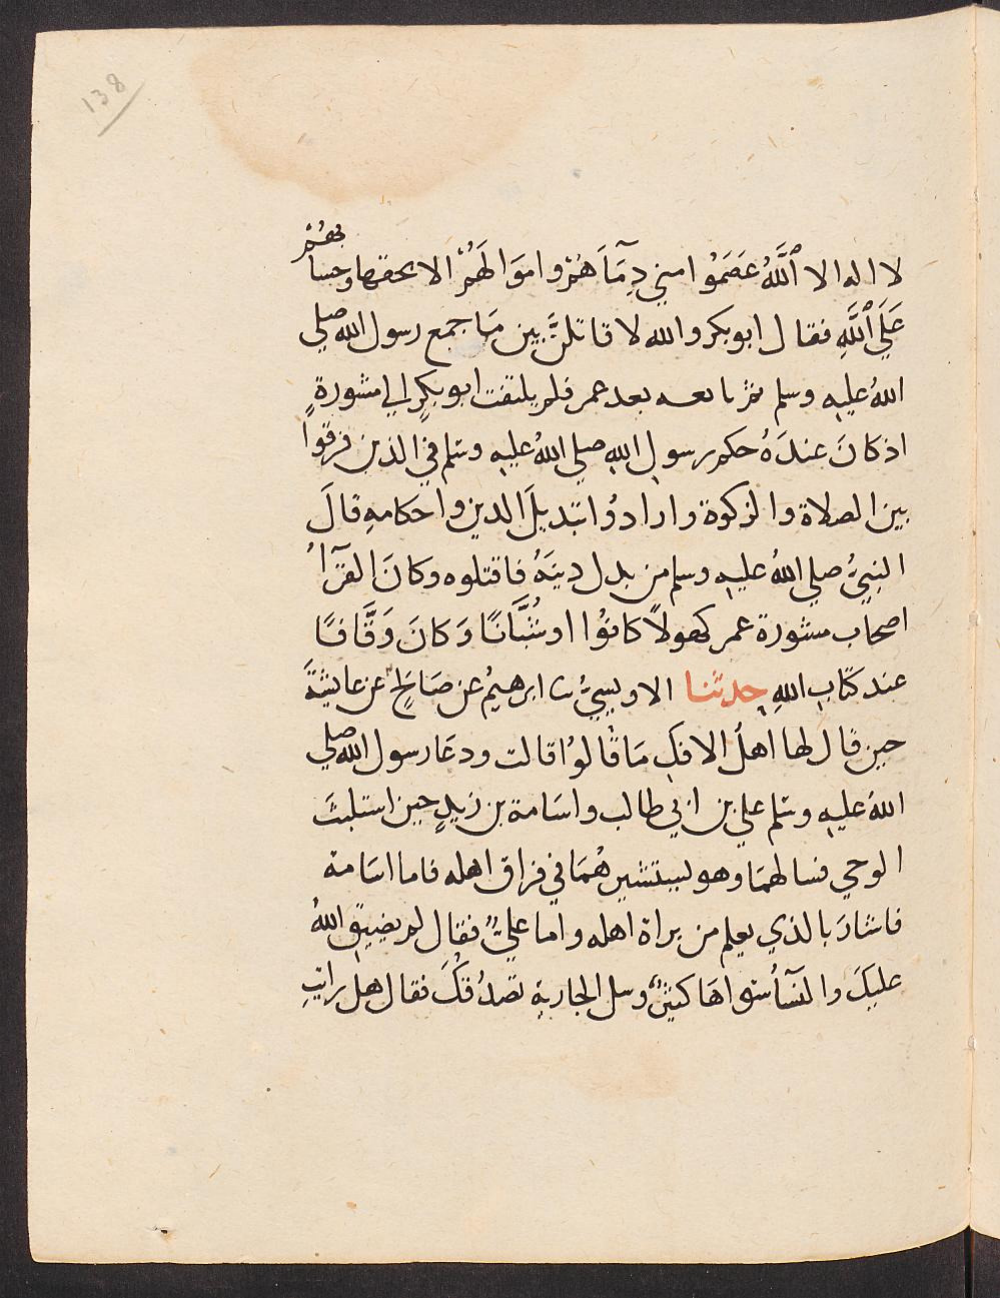 138
لا اله الا ٱللَّهُ عَصَمُوا مني دِمَآءَهُمْ وامْوَالَهُمْ الا بحقها وحسابهُمْ
عَلَي ٱللَّهِ فقال ابو بكر والله لاقاتلنَّ بين مَا جمع رسول الله صلي
اللهُ عليهِ وسلم ثمّ تابعه بعد عمر فلم يلتفت ابو بكرٍ الي مشورةٍ
اذ كانَ عندَهُ حكم رسولِ اللهِ صلي اللهُ عليهِ وسلم في الذين فرقوا
بين الصلاة والزكوة وارادوُا تبديلَ الدين واحكامهِ قالَ
النبيُّ صلي اللهُ عليهِ وسلم من بدل دينَهُ فاقتلوه وكانَ القرّآءُ
اصحاب مشورة عمر كهولاً كانوُا او شُبَّانًا وَكانَ وَقَّافًا
عند كتابِ اللهِ حدثنا الاويسيُّ نا ابرهيمُ عن صَالحٍ عن عايشةَ
حين قال لها اهلُ الافكِ مَا قالوُا قالت ودعَا رسول الله صلي
اللهُ عليهِ وسلم علي بن ابي طالب واسَامة بن زيدٍ حين استلبثَ
الوحي فسالهمَا وهو ليستشيرهُمَا في فراق اهله فاما اسَامة
فاشارَ بالذي يعلم من براة اهله واما عليٌّ فقال لم يضيق اللهُ
عليكَ والنسآُ سواهَا كثيرٌ وسل الجارية تصدُقكَ فقال هل راتِ